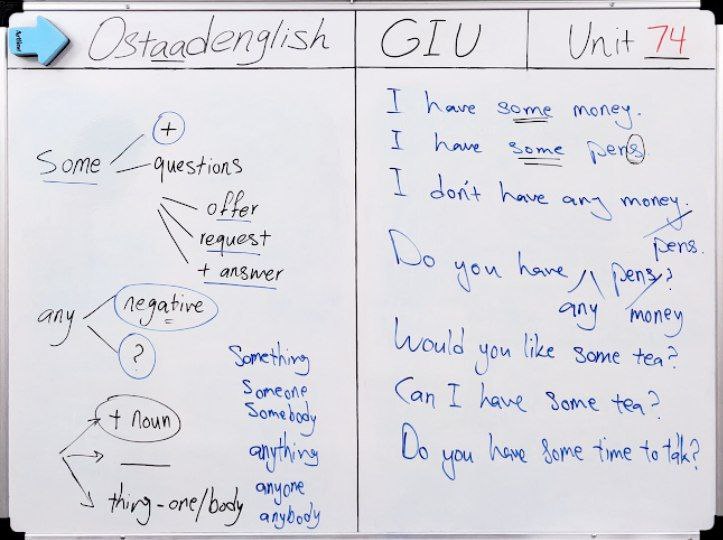 Ostaadenglish
GIU
Unit 74
Some
+
questions
offer
request
+ answer
any
negative
?
+ noun
thing-one/body
Something
Someone
Somebody
anything
anyone
anybody
I have some money.
I have some pens.
I don't have any money.
pens.
Do you have pens?
any money
Would you like some tea?
Can I have some tea?
Do you have some time to talk?